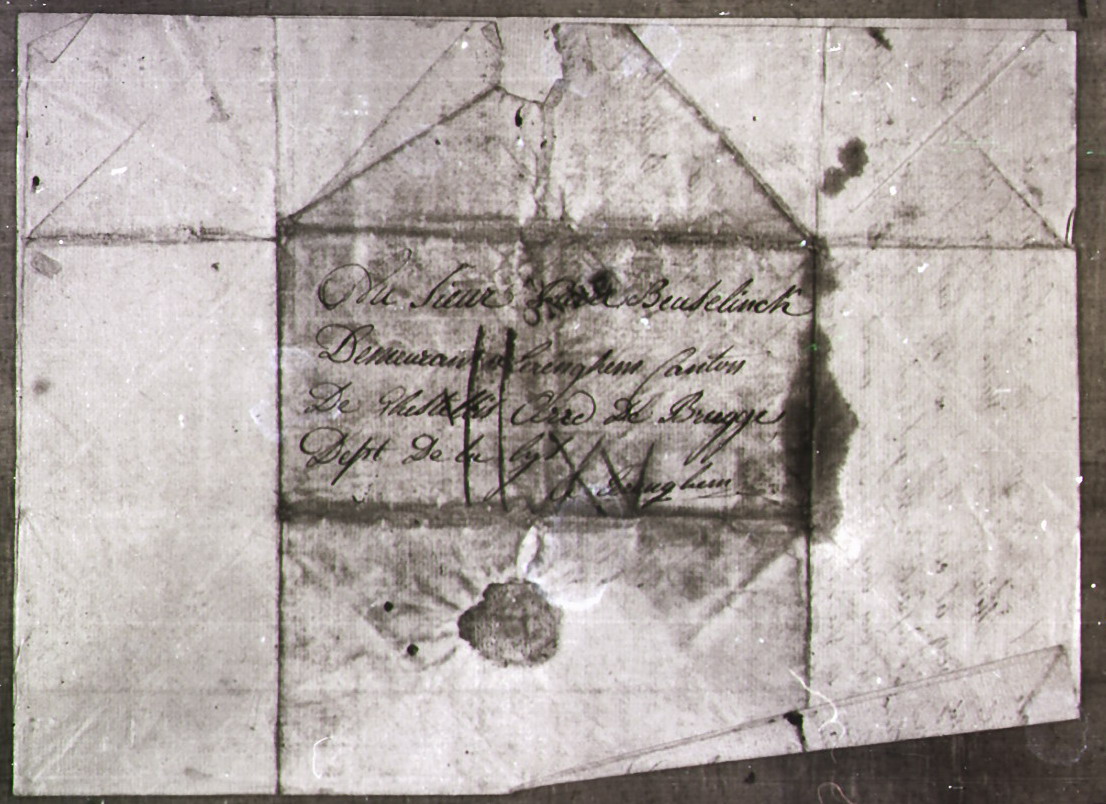 Au Sieur Beuselinck
Demeurant a Zerenghem Canton
De Ghistelles Arrd De Brugge
Dept De la Lys
a